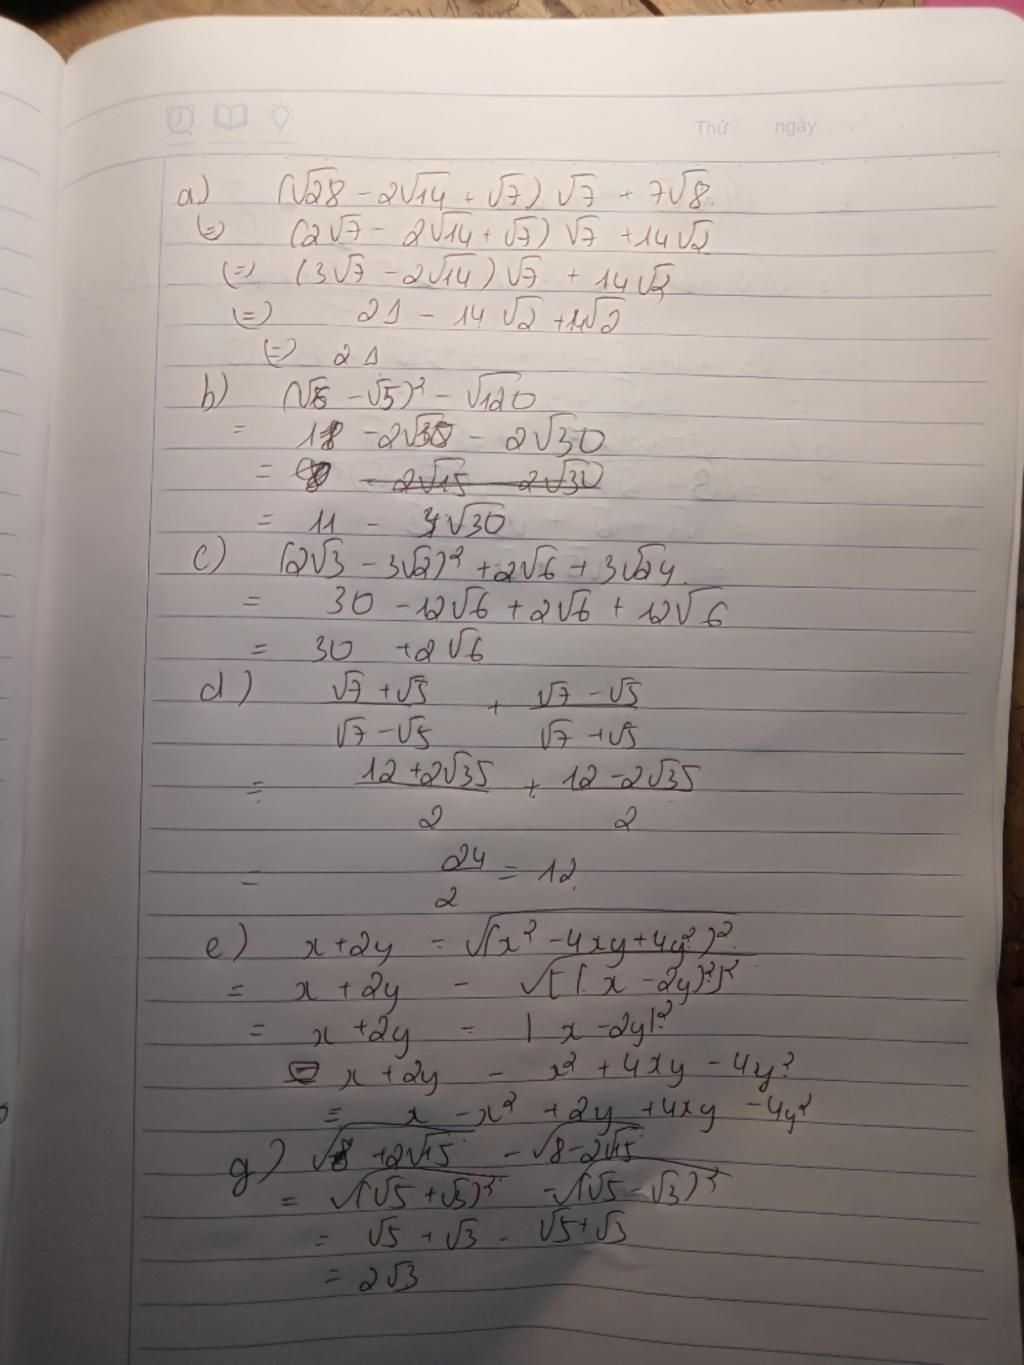 Thứ ngày
a) (√28 - 2√14 + √7) √7 + 7√8
(=) (2√7 - 2√14 + √7) √7 + 14√2
(=) (3√7 - 2√14) √7 + 14√2
(=) 21 - 14√2 + 14√2
(=) 21
b) (√6 - √5)² - √120
= 11 - 2√30 - 2√30
= - 2√15 2√30
= 11 - 4√30
c) (2√3 - 3√2)² + 2√6 + 3√24
= 30 - 12√6 + 2√6 + 12√6
= 30 + 2√6
d) (√7 + √5)/(√7 - √5) + (√7 - √5)/(√7 + √5)
= (12 + 2√35)/2 + (12 - 2√35)/2
= 24/2 = 12
e) x + 2y - √(x² - 4xy + 4y²)²
= x + 2y - √[(x - 2y)²]²
= x + 2y - |x - 2y|²
= x + 2y - x² + 4xy - 4y²
= x - x² + 2y + 4xy - 4y²
g) √(8 + 2√15) - √(8 - 2√15)
= √(√5 + √3)² - √(√5 - √3)²
= √5 + √3 - √5 + √3
= 2√3